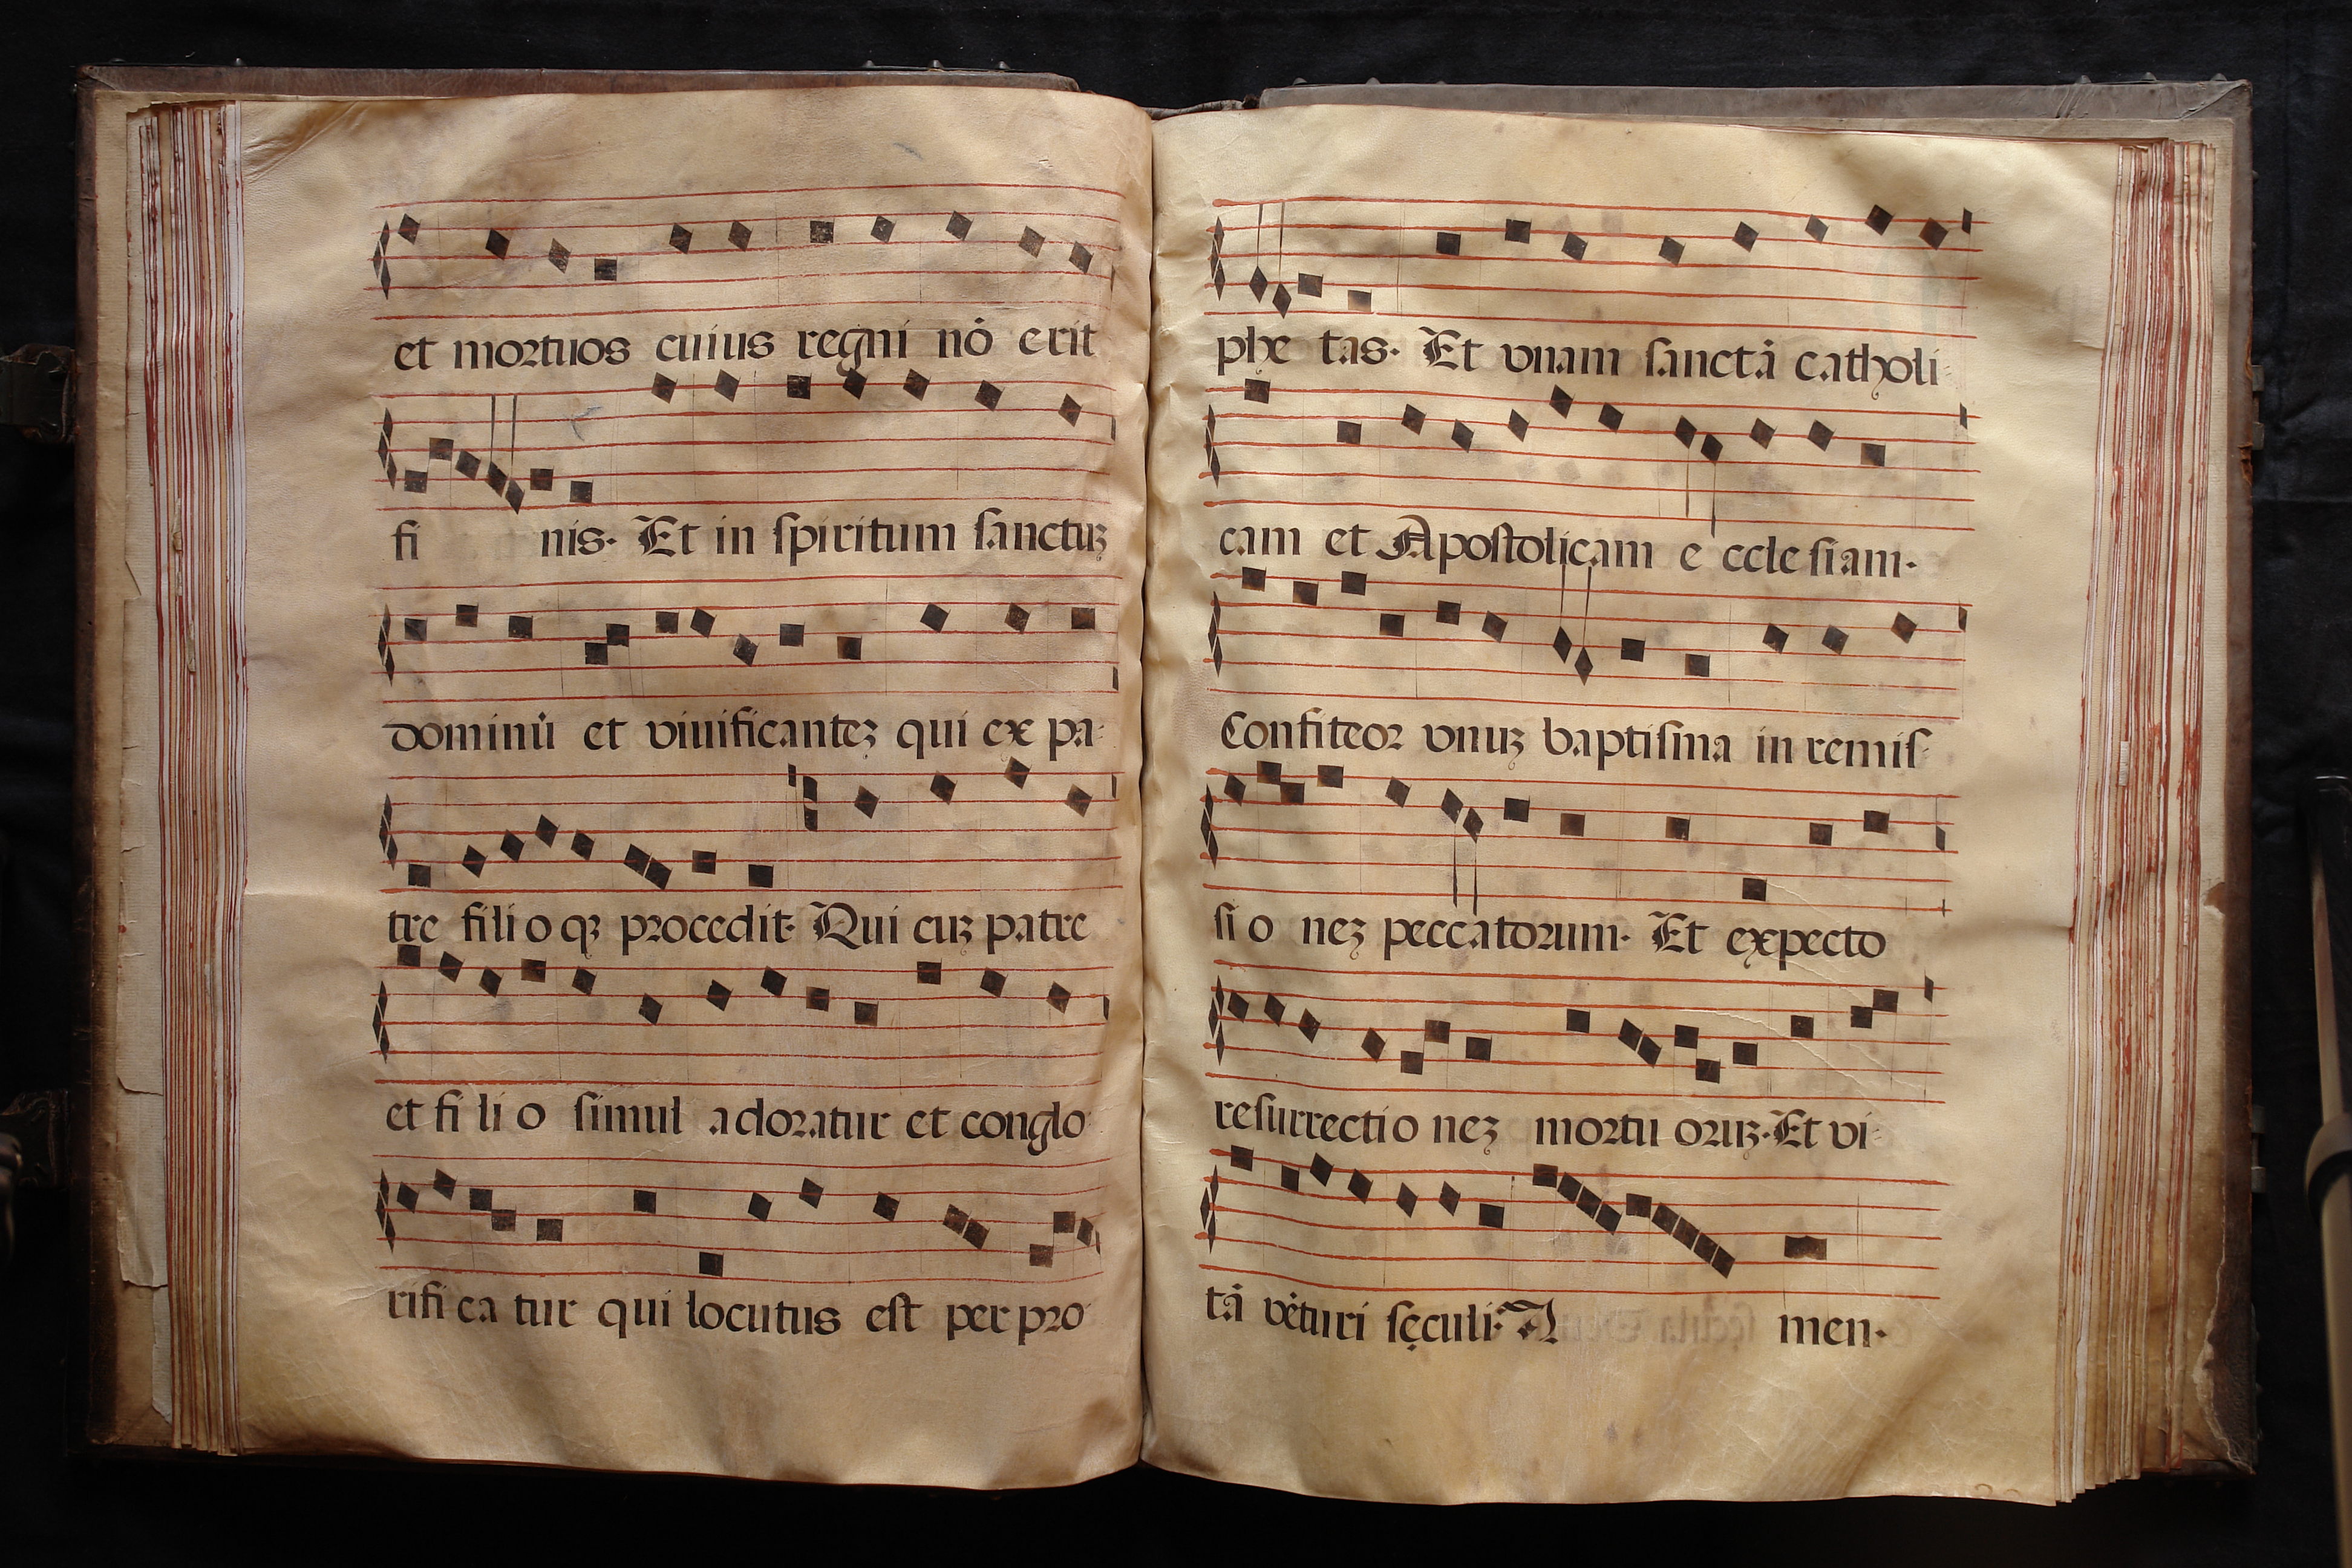 et mortuos cuius regni nō erit
fi nis. Et in ſpiritum ſanctuꝫ
dominū et viuificanteꝫ qui ex pa-
tre filioqꝫ procedit. Qui cuꝫ patre
et filio ſimul adoratur et conglo-
rificatur qui locutus eſt per pro-
phe tas. Et vnam ſanctā catholi-
cam et Apoſtolicam e ccleſiam.
Confiteor vnuꝫ baptiſma in remiſ-
ſio neꝫ peccatorum. Et expecto
reſurrectio neꝫ mortu oruꝫ. Et vi-
tā vēturi ſęculi. A men.